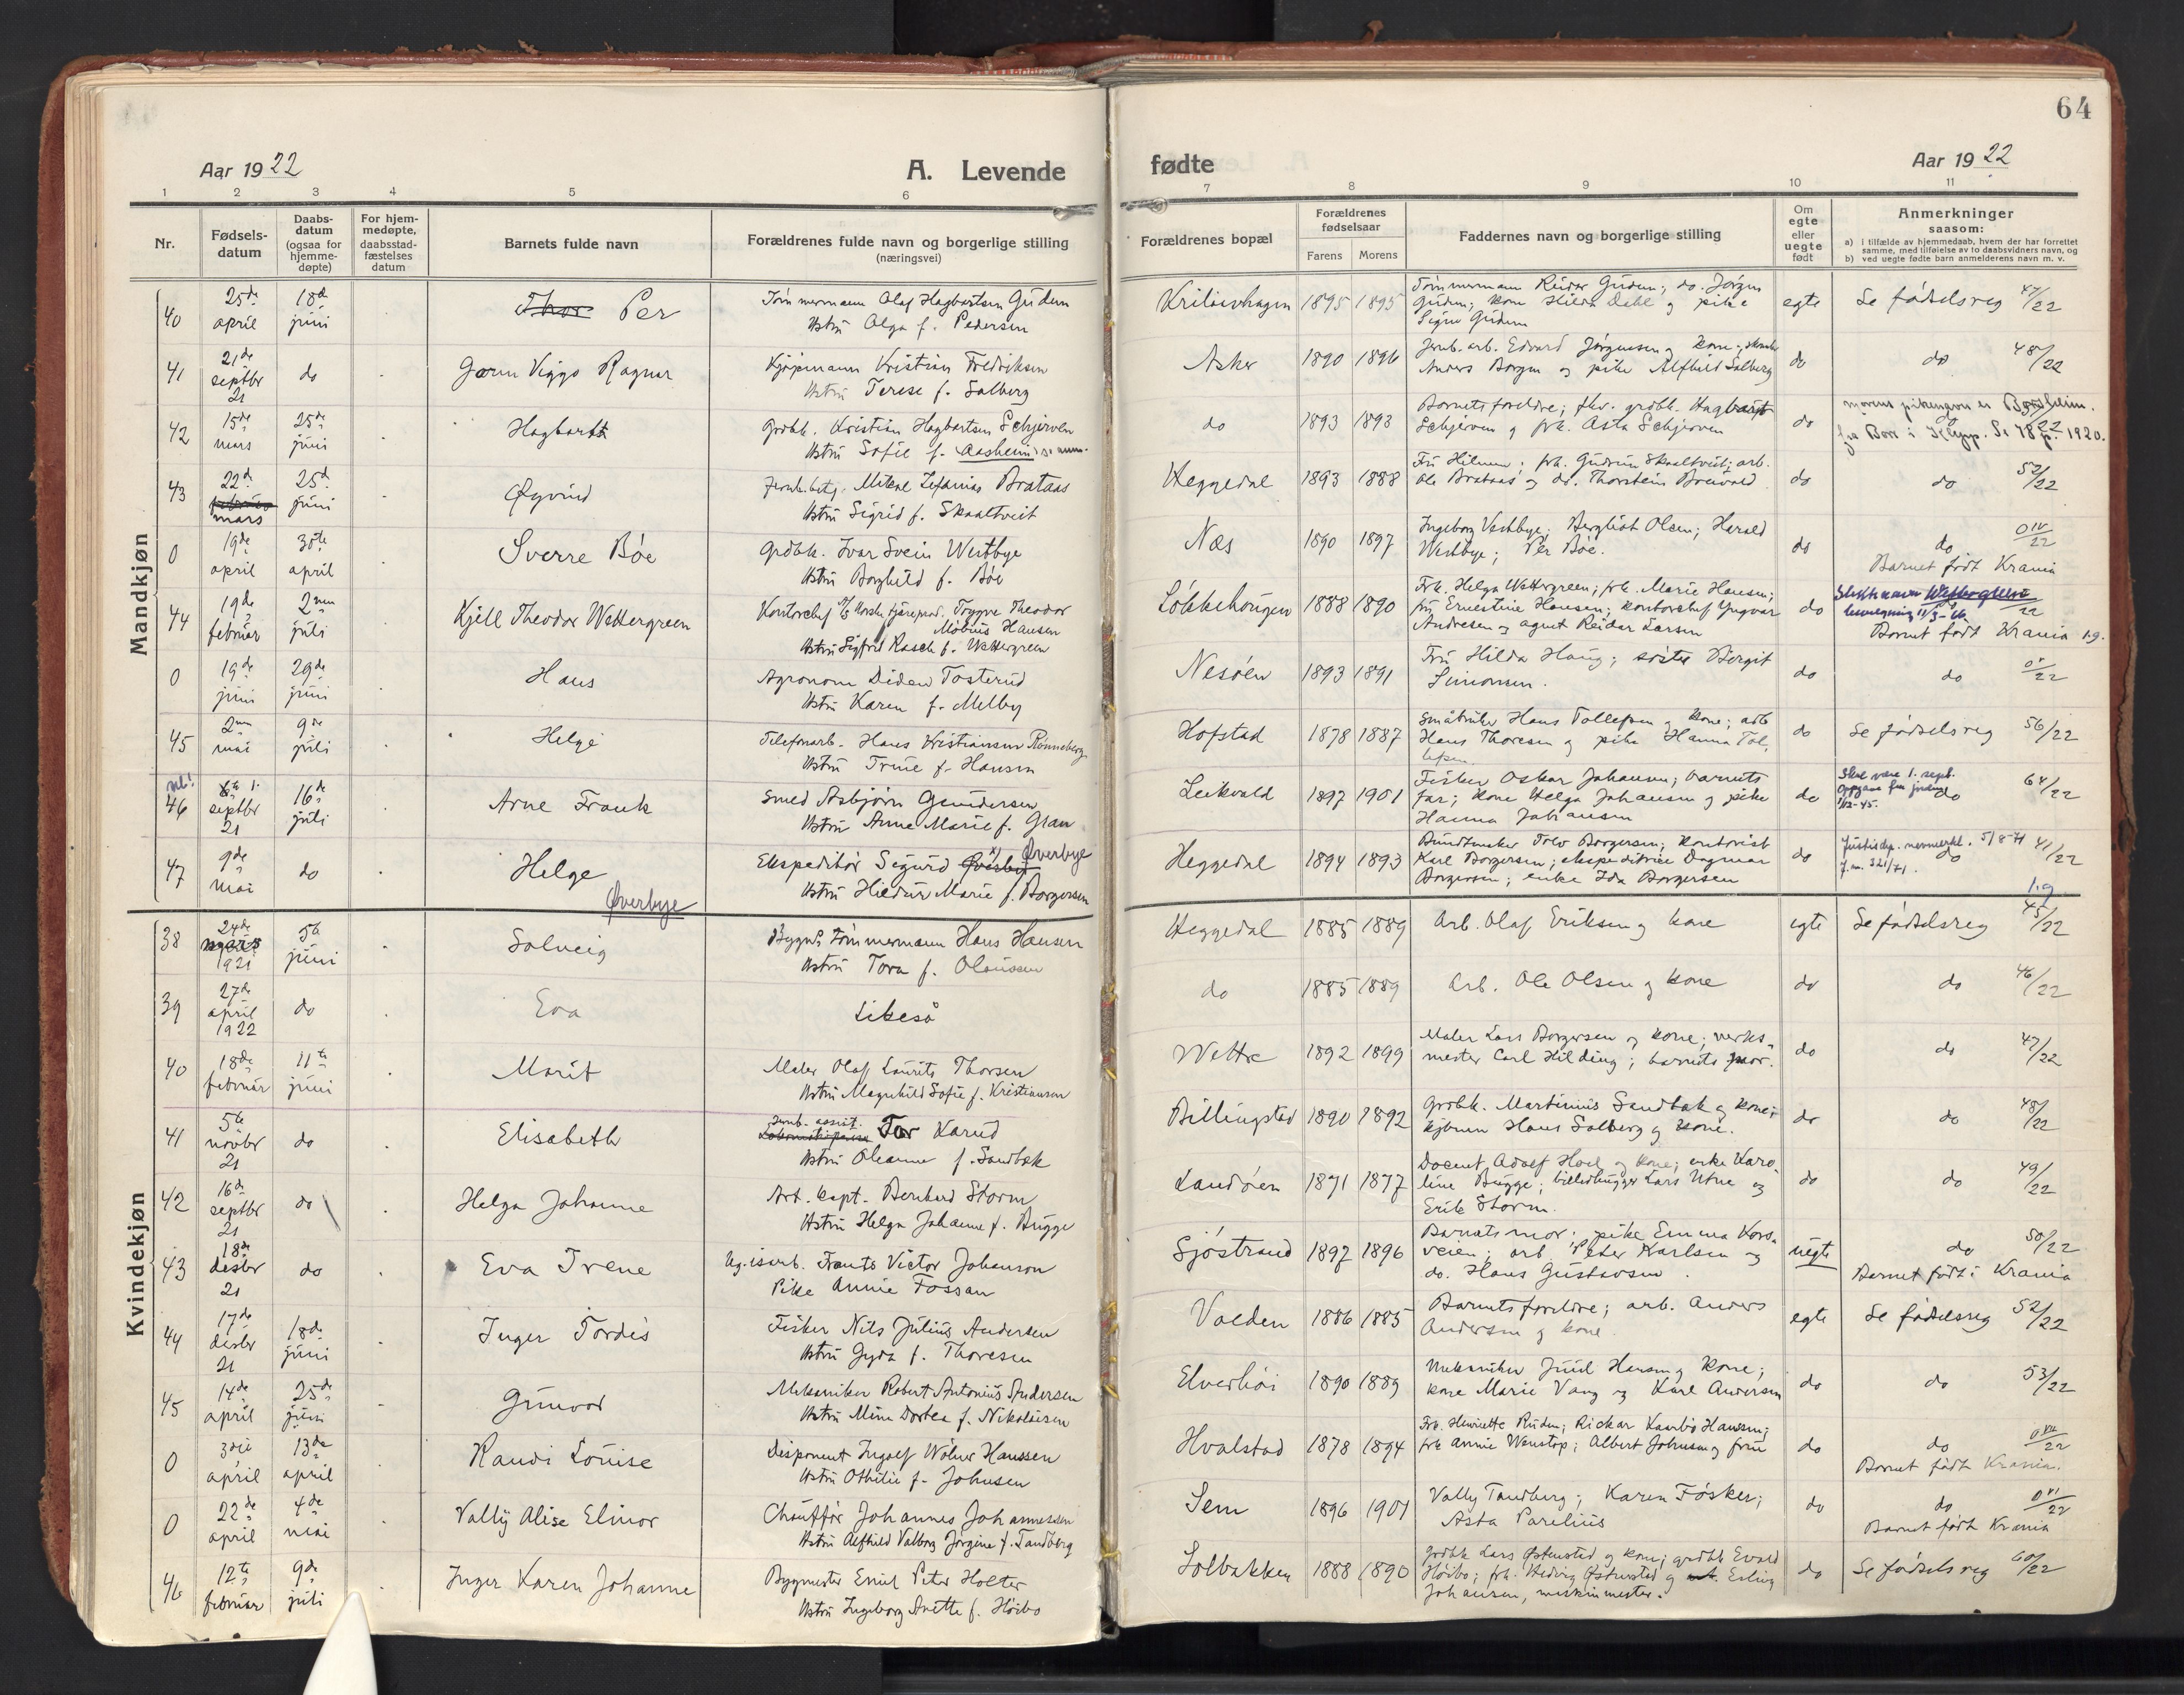 64
Aar 1922
A. Levende
fødte
Aar 1922
1 2 3 4 5 6 7 8 9 10 11
Nr.
Fødselsdatum
Daabsdatum (ogsaa for hjemmedøpte)
For hjemmedøpte, daabsstadfæstelses datum
Barnets fulde navn
Forældrenes fulde navn og borgerlige stilling (næringsvei)
Forældrenes bopæl
Forældrenes fødselsaar
Farens Morens
Faddernes navn og borgerlige stilling
Om egte eller uegte født
Anmerkninger saasom:
a) i tilfælde av hjemmedaab, hvem der har forrettet samme, med tilføielse av to daabsvidners navn, og
b) ved uegte fødte barn anmelderens navn m. v.
Mandkjøn
40 25de april 18de juni Thor Per
Tömmermann Olaf Hagbartsen Gudem
Hstru Olga f. Pedersen
1895 1895
Tömmermann Reidar Gudem; do. Jörgen
Gudem; kone Hilda Dahl og pike
Signe Gudem
egte Se fødselsreg 47/22
41 21de septbr 21 do Gorm Viggo Ragnar
Kjøpmann Kristian Fredriksen
Hstru Terese f. Solberg
Asker 1890 1896
Jernb. arb. Edvard Jørgensen og kone;
Anders Borgen og pike Alfhild Solberg
do do 48/22
42 15de mars 25de juni Hagbart
Grdbr. Kristian Hagbartsen Schjerven
Hstru Sofie f. Aasheim
do 1893 1893
Barnets foreldre; fhv. grdbr. Hagbart
Schjerven og frk. Asta Schjerven
do
morens pikenavn er
43 22de februar mars 25de juni Øyvind
Mikal Zefanias Brataas
Hstru Sigrid f. Skaaltveit
Heggedal 1893 1888
Fru Hilmen; frk. Gudrun Skaaltveit; arb.
Ole Brataas og do. Thorstein Breivold
do do 52/22
0 19de april 30te april Sverre Böe
Grdbr. Ivar Svein Westbye
Hstru Borghild f. Böe
Næs 1890 1897
Ingeborg Westbye; Bergliot Olsen; Harald
Westbye; Per Böe.
do do
Barnet født Krania
44 19de februar 2nen juli Kjell Theodor Wettergreen
Trygve Theodor
Möbius Hansen
Hstru Sigfrid Rasch f. Wettergreen
1888 1890
Frk. Helga Wettergreen; frk. Marie Hansen;
fru Ernestine Hansen; kontorchef Yngvar
Andresen og agent Reidar Larsen
do
Barnet født Krania
0 19de juni 29de juni Hans
Agronom Tosterud
Hstru Karen f. Melby
Nesöen 1893 1891
Fru Hilda Haug; søster Borgit
Simonsen.
do do
45 2nen mai 9de juli Helge
Telefonarb. Hans Kristiansen Rønneberg
Hstru Trine f. Hansen
Hofstad 1878 1887
Småbruker Hans Tollefsen og kone; arb
Hans Thoresen og pike Hanna Tollefsen
do Se fødselsreg 56/22
nb! 46 1. septbr 21 16de juli Arne Frank
Smed Asbjørn Gundersen
Hstru Anne Marie f. Gran
Leikvold 1897 1901
Fisker Oskar Johansen; barnets
far; kone Helga Johansen og pike
Hanna Johansen
do
Skal være 1. sept.
do 64/22
47 9de mai do Helge Øverbye
Ekspeditör Sigurd Øverbye
Hstru Hildur Marie f. Borgersen
Heggedal 1894 1893
Buntmaker Tolv Borgersen; kontorist
Karl Borgersen; ekspeditrice Dagmar
Borgersen; enke Ida Borgersen
do do 41/22
Kvindekjøn
38 24de mars 1921 5te juni Solveig
Tömmermann Hans Hansen
Hstru Tora f. Olaussen
Heggedal 1885 1889
Arb. Olaf Eriksen og kone
egte Se fødselsreg 45/22
39 27de april 1922 do Eva
Likeså
do 1885 1889
Arb. Ole Olsen og kone
do do 46/22
40 18de februar 11te juni Marit
Maler Olaf Laurits Thorsen
Hstru Magnhild Sofie f. Kristiansen
Wettre 1892 1899
Maler Lars Borgersen og kone; verksmester
Carl Hilding; barnets mor.
do do 47/22
41 5te novbr 21 do Elisabeth
Jernb. assist. Tor Karud
Hstru Oleanne f. Sandbæk
Billingstad 1890 1892
Grdbr. Martinius Sandbæk og kone;
kjøbm Hans Solberg og kone.
do do 48/22
42 16de septbr 21 do Helga Johanne
Art. kapt. Bernhard Storm
Hstru Helga Johanne f. Bugge
Landöen 1871 1877
Docent Adolf Hoel og kone; enke Karoline
Bugge; billedhugger Lars Utne og
Erik Storm.
do do 49/22
43 18de desbr 21 do Eva Irene
Frants Victor Johanson
Pike Annie Fossan
Sjöstrand 1897 1896
Barnets mor; pike Emma Korsveien;
arb. Peter Karlsen og
do. Hans Gustavsen.
uegte do 50/22
Barnet født i Krania
44 17de desbr 21 18de juni Inger Tordis
Fisker Nils Julius Andersen
Hstru Gyda f. Thoresen
Volden 1886 1885
Barnets foreldre; arb. Anders
Andersen og kone.
egte Se fødselsreg 52/22
45 14de april 25de juni Gunvor
Mekaniker Robert Antonius Andersen
Hstru Mina Dortea f. Nikolaisen
Elverhöi 1890 1889
Mekaniker Juul Hansen og kone;
kone Marie Vang og Karl Andersen
do do 53/22
0 3die april 13de april Randi Louise
Disponent Ingolf Wölner Hanssen
Hstru Othilie f. Johnsen
Hvalstad 1878 1894
Frk. Henriette Ruden; Rickar Kaarbö Hanssen;
frk Annie Wenstöp; Albert Johnsen og frue
do do
Barnet født Krania.
0 22de april 4de mai Vally Alise Elinor
Chauffør Johannes Johannessen
Hstru Alfhild Valborg Jørgine f. Tandberg
Sem 1896 1901
Vally Tandberg; Karen Fösker;
Asta Parelius
do do
Barnet født Krania
46 12te februar 9de juli Inger Karen Johanne
Bygmester Emil Peter Holter
Hstru Ingeborg Anette f. Höibo
Solbakken 1888 1890
Grdbr Lars Østensted og kone; grdbr Evald
Höibo; frk. Hedvig Østensted og Erling
Johansen, maskinmester.
do Se fødselsreg 60/22